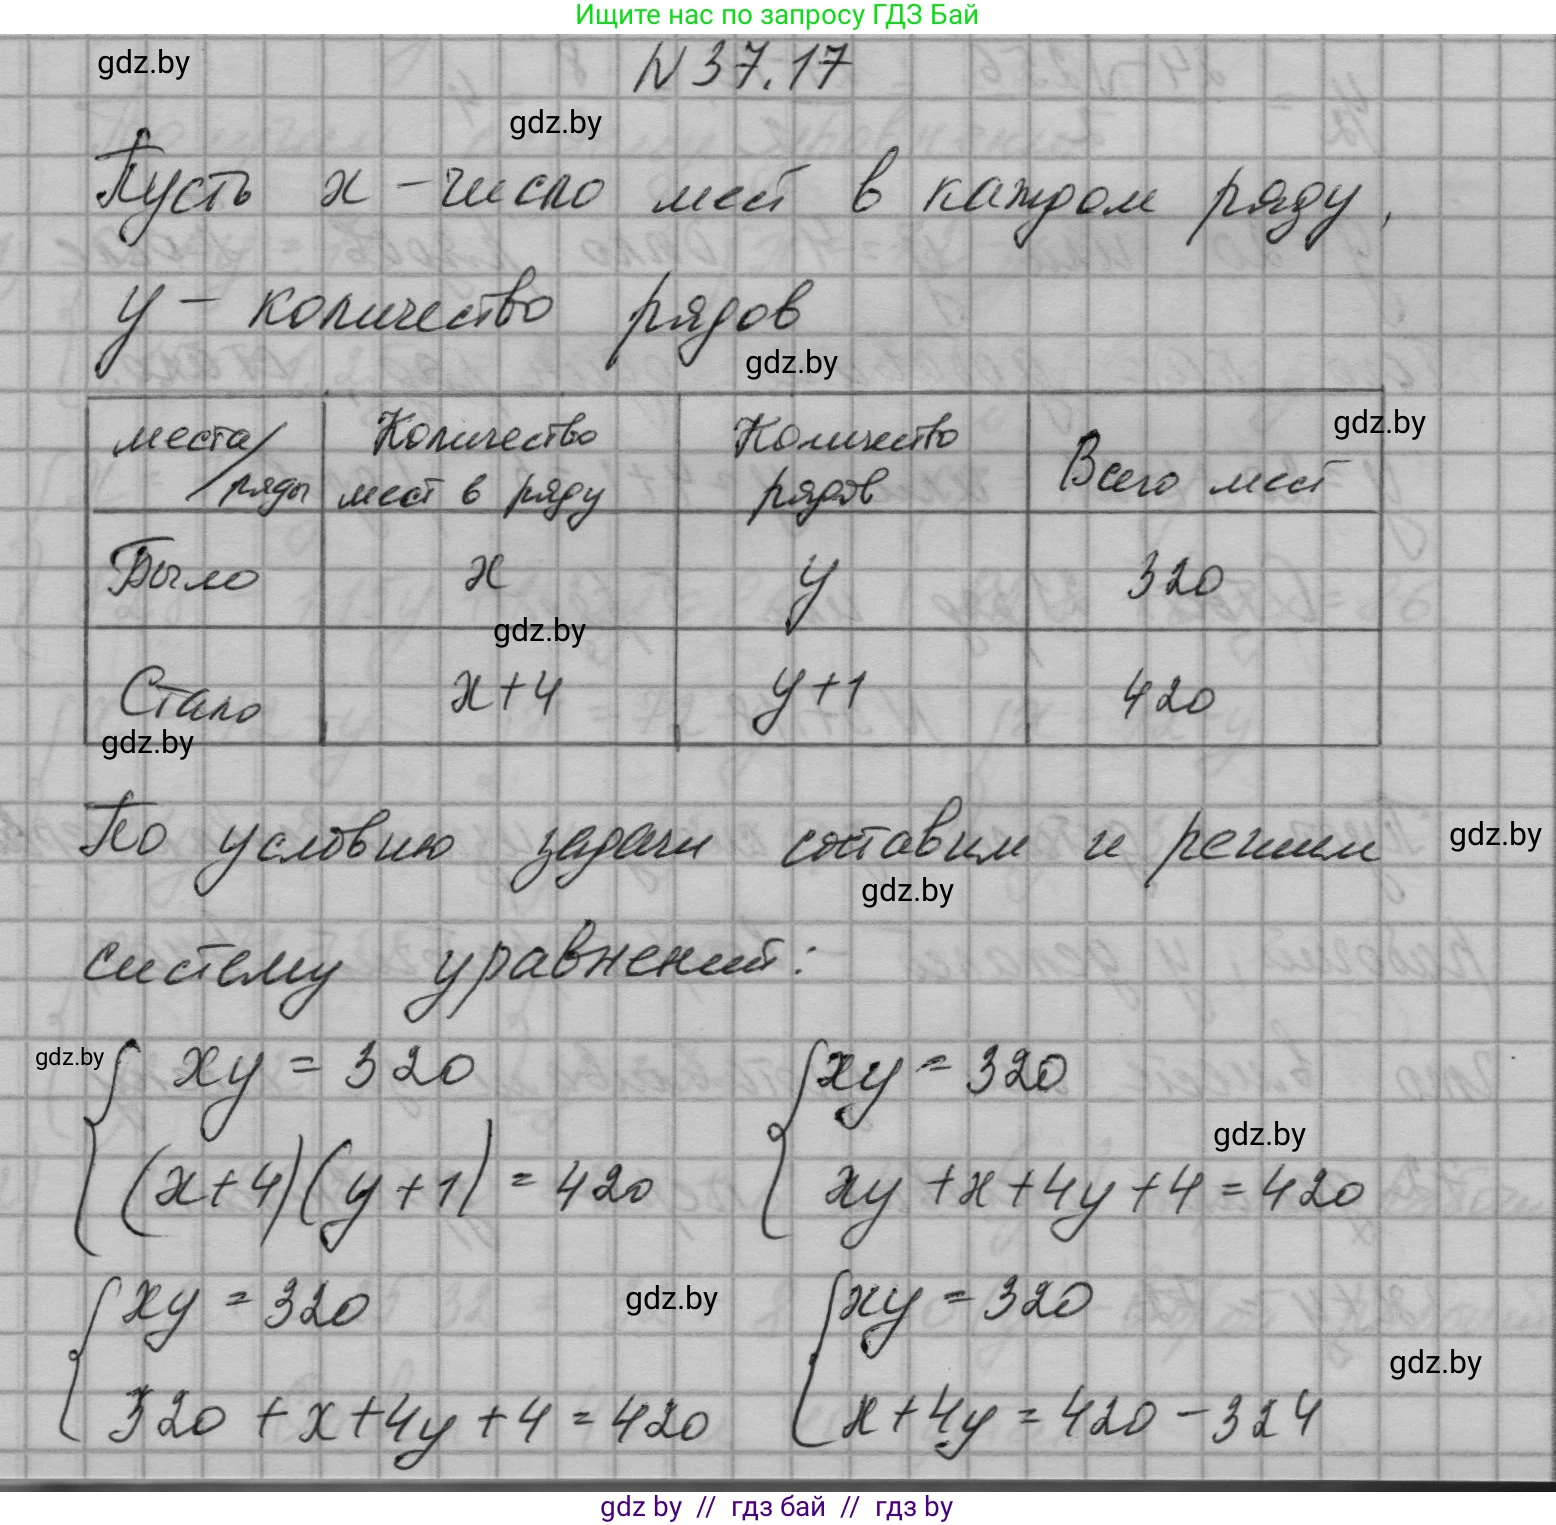 Ищите нас по запросу ГДЗ Бай
gdz.by
N 37.17
gdz.by
Пусть x – число мест в каждом ряду,
y – количество рядов
gdz.by
места/ряды | Количество мест в ряду | Количество рядов | Всего мест
gdz.by
Было | x | y | 320
gdz.by
Стало | x+4 | y+1 | 420
gdz.by
По условию задачи составим и решим
gdz.by
gdz.by
систему уравнений:
gdz.by
{ xy = 320 { xy = 320
gdz.by
(x+4)(y+1) = 420 xy + x + 4y + 4 = 420
{ xy = 320 { xy = 320
gdz.by
gdz.by
320 + x + 4y + 4 = 420 x + 4y = 420 – 324
gdz by // гдз бай // гдз by